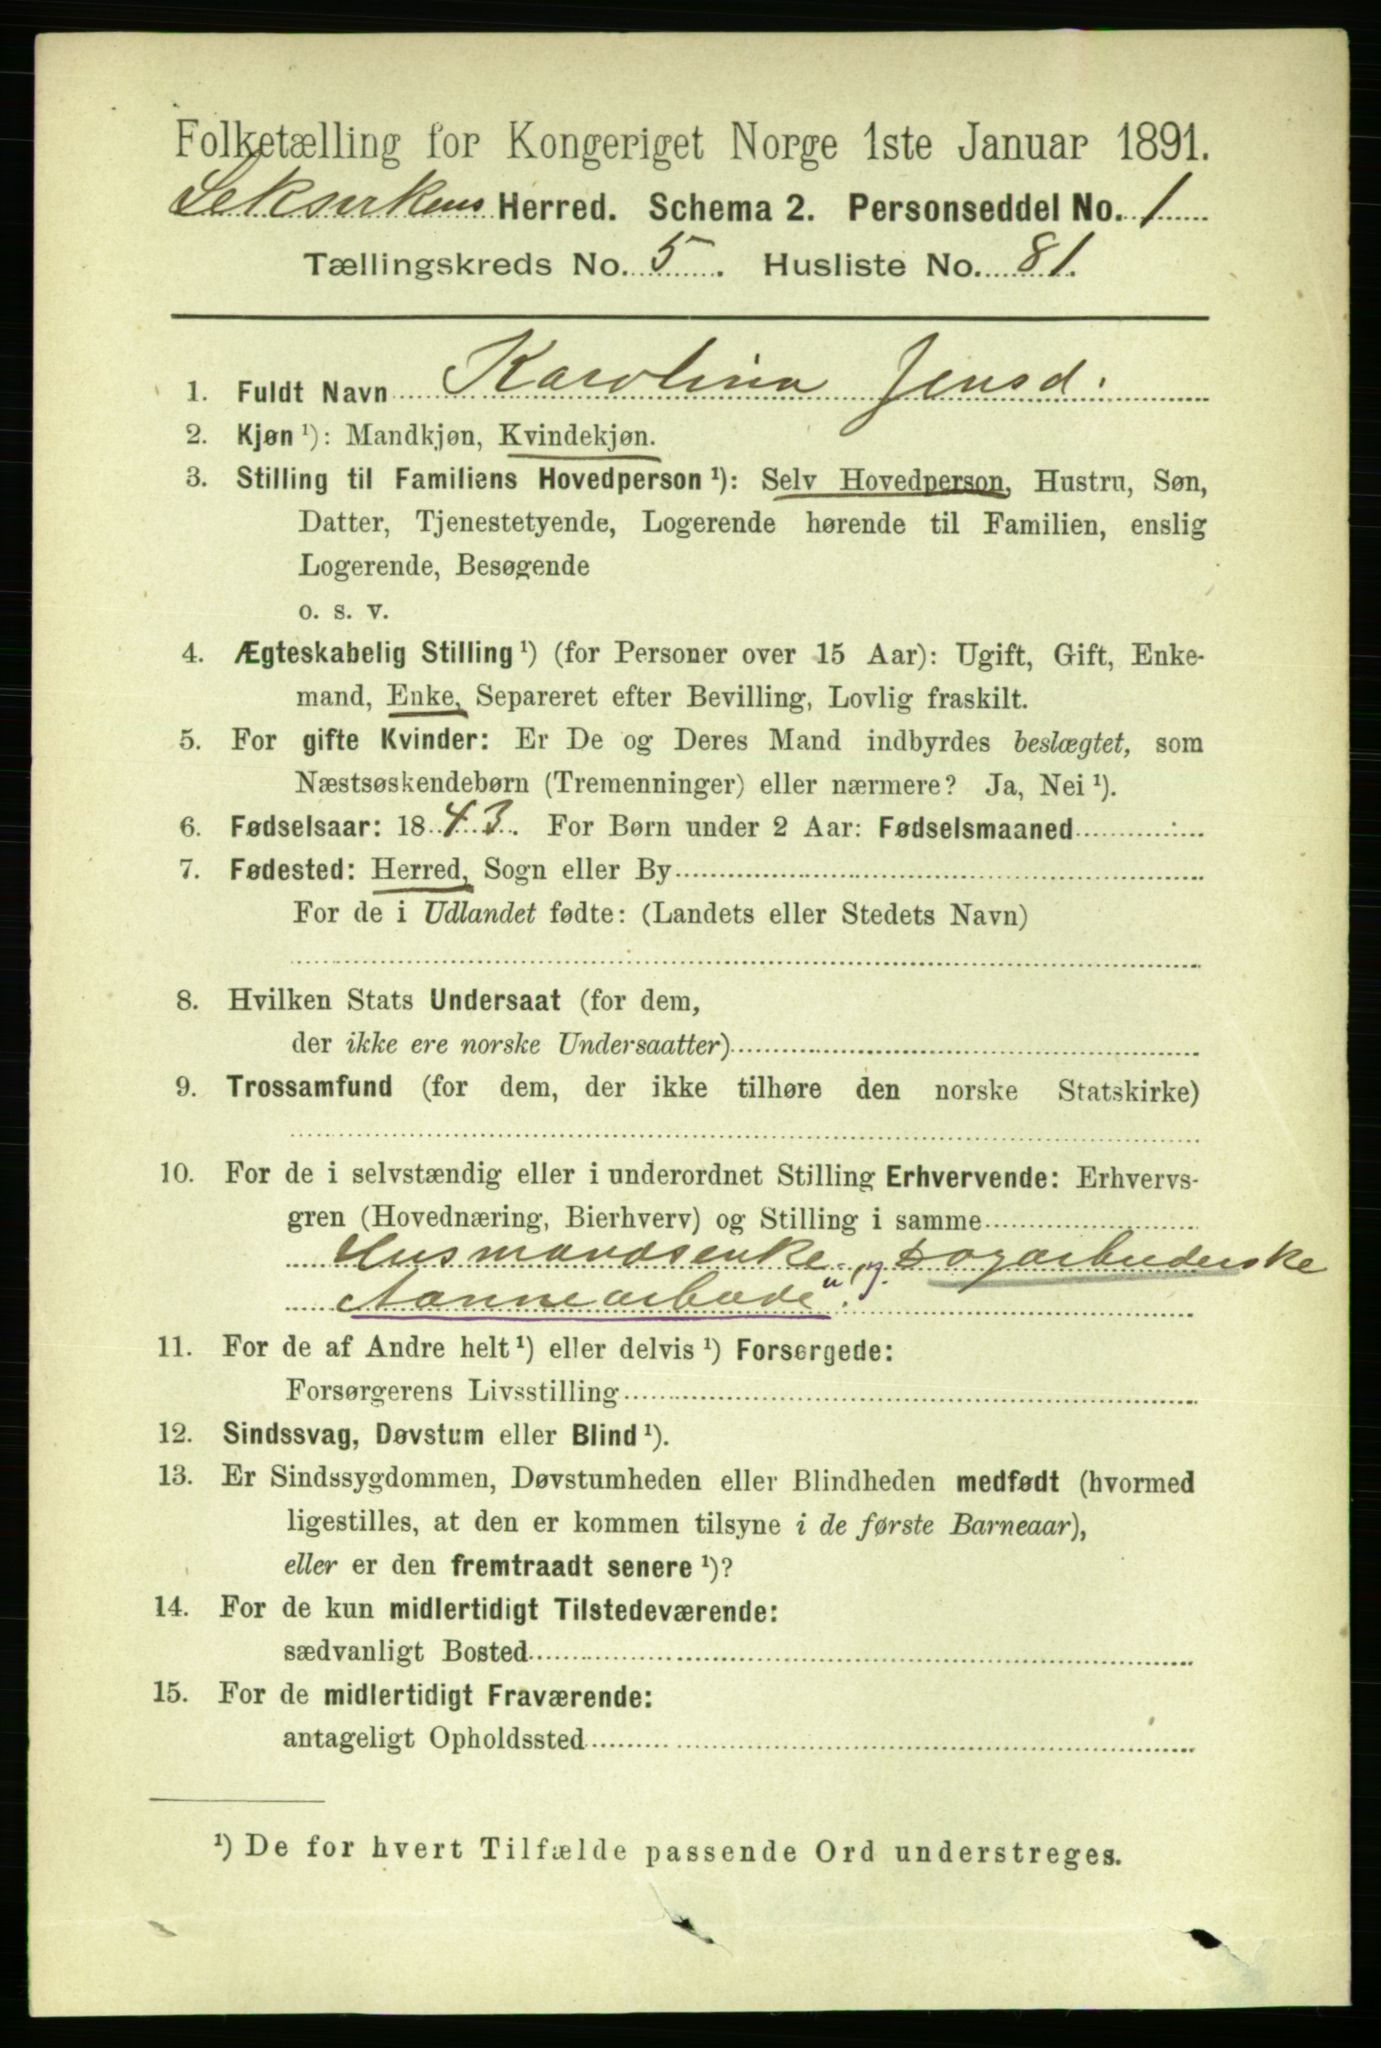 Folketælling for Kongeriget Norge 1ste Januar 1891.
Leksvikens Herred. Schema 2. Personseddel No. 1
Tællingskreds No. 5. Husliste No. 81.
1. Fuldt Navn Karolina Jensd.
2. Kjøn ¹): Mandkjøn, Kvindekjøn.
3. Stilling til Familiens Hovedperson ¹): Selv Hovedperson, Hustru, Søn,
Datter, Tjenestetyende, Logerende hørende til Familien, enslig
Logerende, Besøgende
o. s. v.
4. Ægteskabelig Stilling ¹) (for Personer over 15 Aar): Ugift, Gift, Enke-
mand, Enke, Separeret efter Bevilling, Lovlig fraskilt.
5. For gifte Kvinder: Er De og Deres Mand indbyrdes beslægtet, som
Næstsøskendebørn (Tremenninger) eller nærmere? Ja, Nei ¹).
6. Fødselsaar: 1843. For Børn under 2 Aar: Fødselsmaaned
7. Fødested: Herred, Sogn eller By
For de i Udlandet fødte: (Landets eller Stedets Navn)
8. Hvilken Stats Undersaat (for dem,
der ikke ere norske Undersaatter)
9. Trossamfund (for dem, der ikke tilhøre den norske Statskirke)
10. For de i selvstændig eller i underordnet Stilling Erhvervende: Erhvervs-
gren (Hovednæring, Bierhverv) og Stilling i samme
Husmandsenke og Dagarbederske
Aannearbede".
11. For de af Andre helt ¹) eller delvis ¹) Forsørgede:
Forsørgerens Livsstilling
12. Sindssvag, Døvstum eller Blind ¹).
13. Er Sindssygdommen, Døvstumheden eller Blindheden medfødt (hvormed
ligestilles, at den er kommen tilsyne i de første Barneaar),
eller er den fremtraadt senere ¹)?
14. For de kun midlertidigt Tilstedeværende:
sædvanligt Bosted
15. For de midlertidigt Fraværende:
antageligt Opholdssted
¹) De for hvert Tilfælde passende Ord understreges.